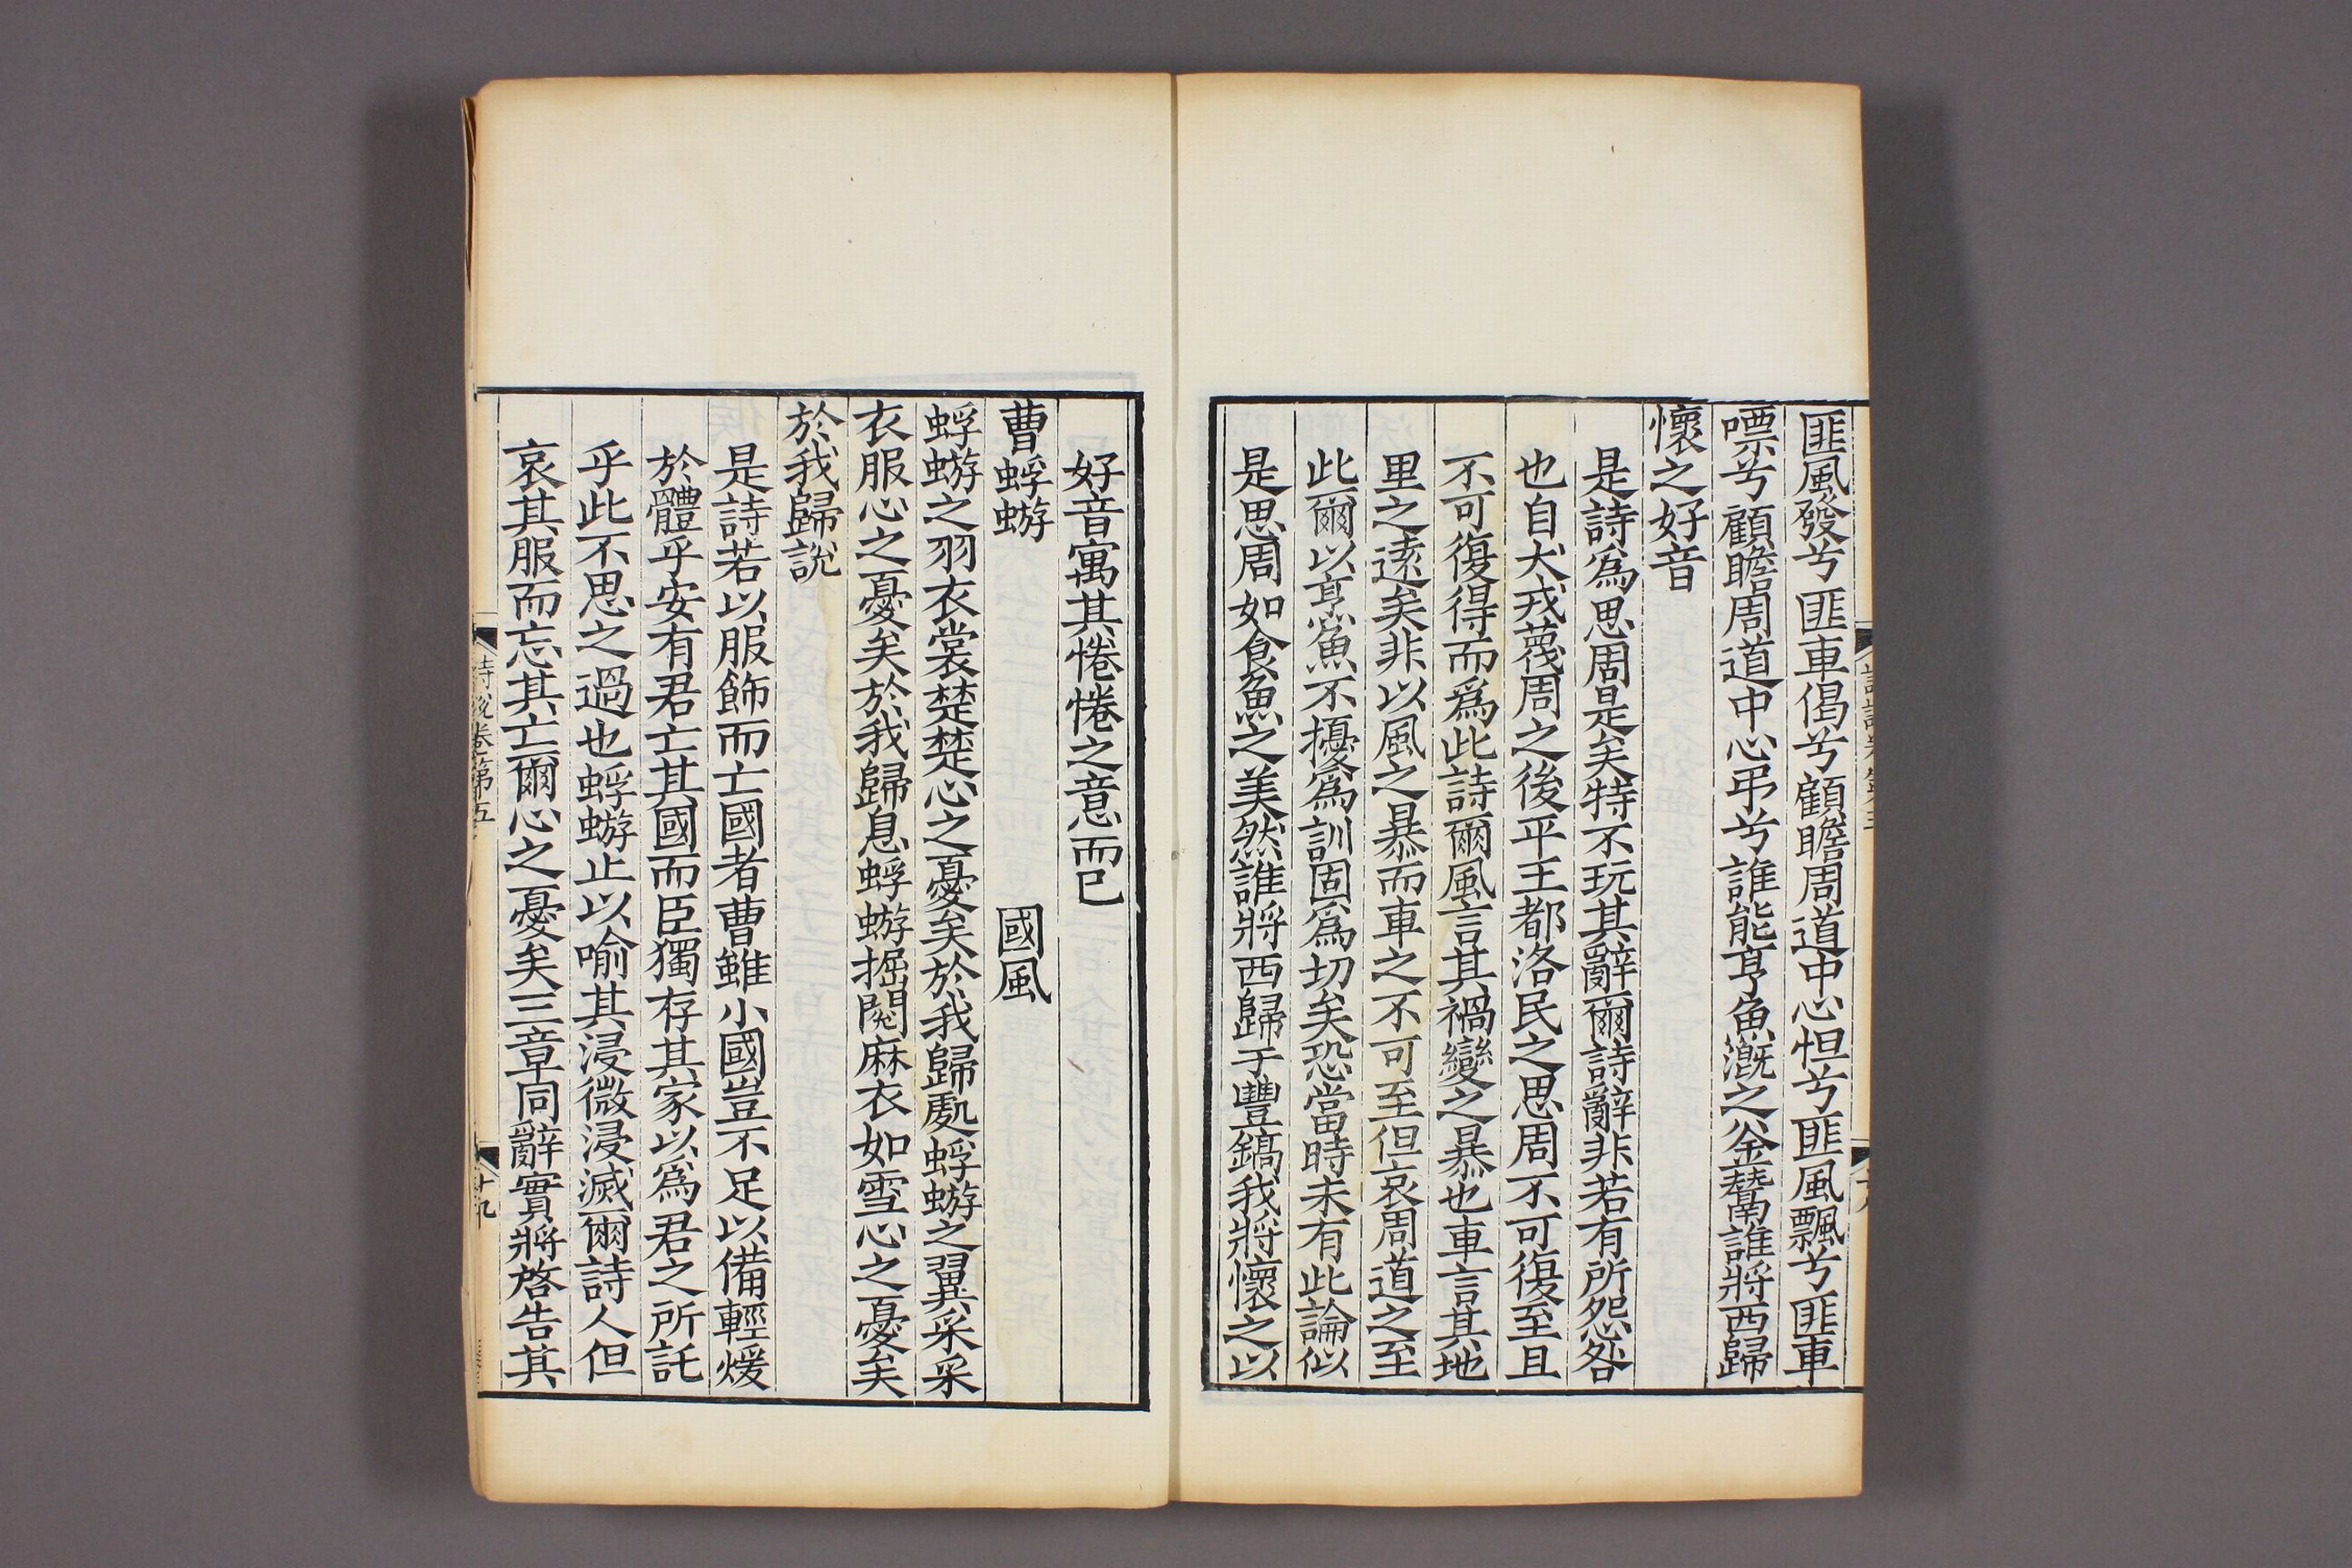 匪風發兮匪車偈兮顧瞻周道中心怛兮匪風飄兮匪車
嘌兮顧瞻周道中心弔兮誰能亨魚溉之釜鬵誰將西歸
懷之好音
是詩為思周是矣特不玩其辭爾詩辭非若有所怨咎
也自犬戎蔑周之後平王都洛民之思周不可復至且
不可復得而為此詩爾風言其禍變之暴也車言其地
里之遠矣非以風之暴而車之不可至但哀周道之至
此爾以亨魚不擾為訓固為切矣恐當時未有此論似
是思周如食魚之美然誰將西歸于豐鎬我將懷之以
好音寓其惓惓之意而已
曹蜉蝣 國風
蜉蝣之羽衣裳楚楚心之憂矣於我歸處蜉蝣之翼采采
衣服心之憂矣於我歸息蜉蝣掘閱麻衣如雪心之憂矣
於我歸說
是詩若以服飾而亡國者曹雖小國豈不足以備輕煖
於體乎安有君亡其國而臣獨存其家以為君之所託
乎此不思之過也蜉蝣止以喻其浸微浸滅爾詩人但
哀其服而忘其亡爾心之憂矣三章同辭實將啓告其
詩說卷第五
十九